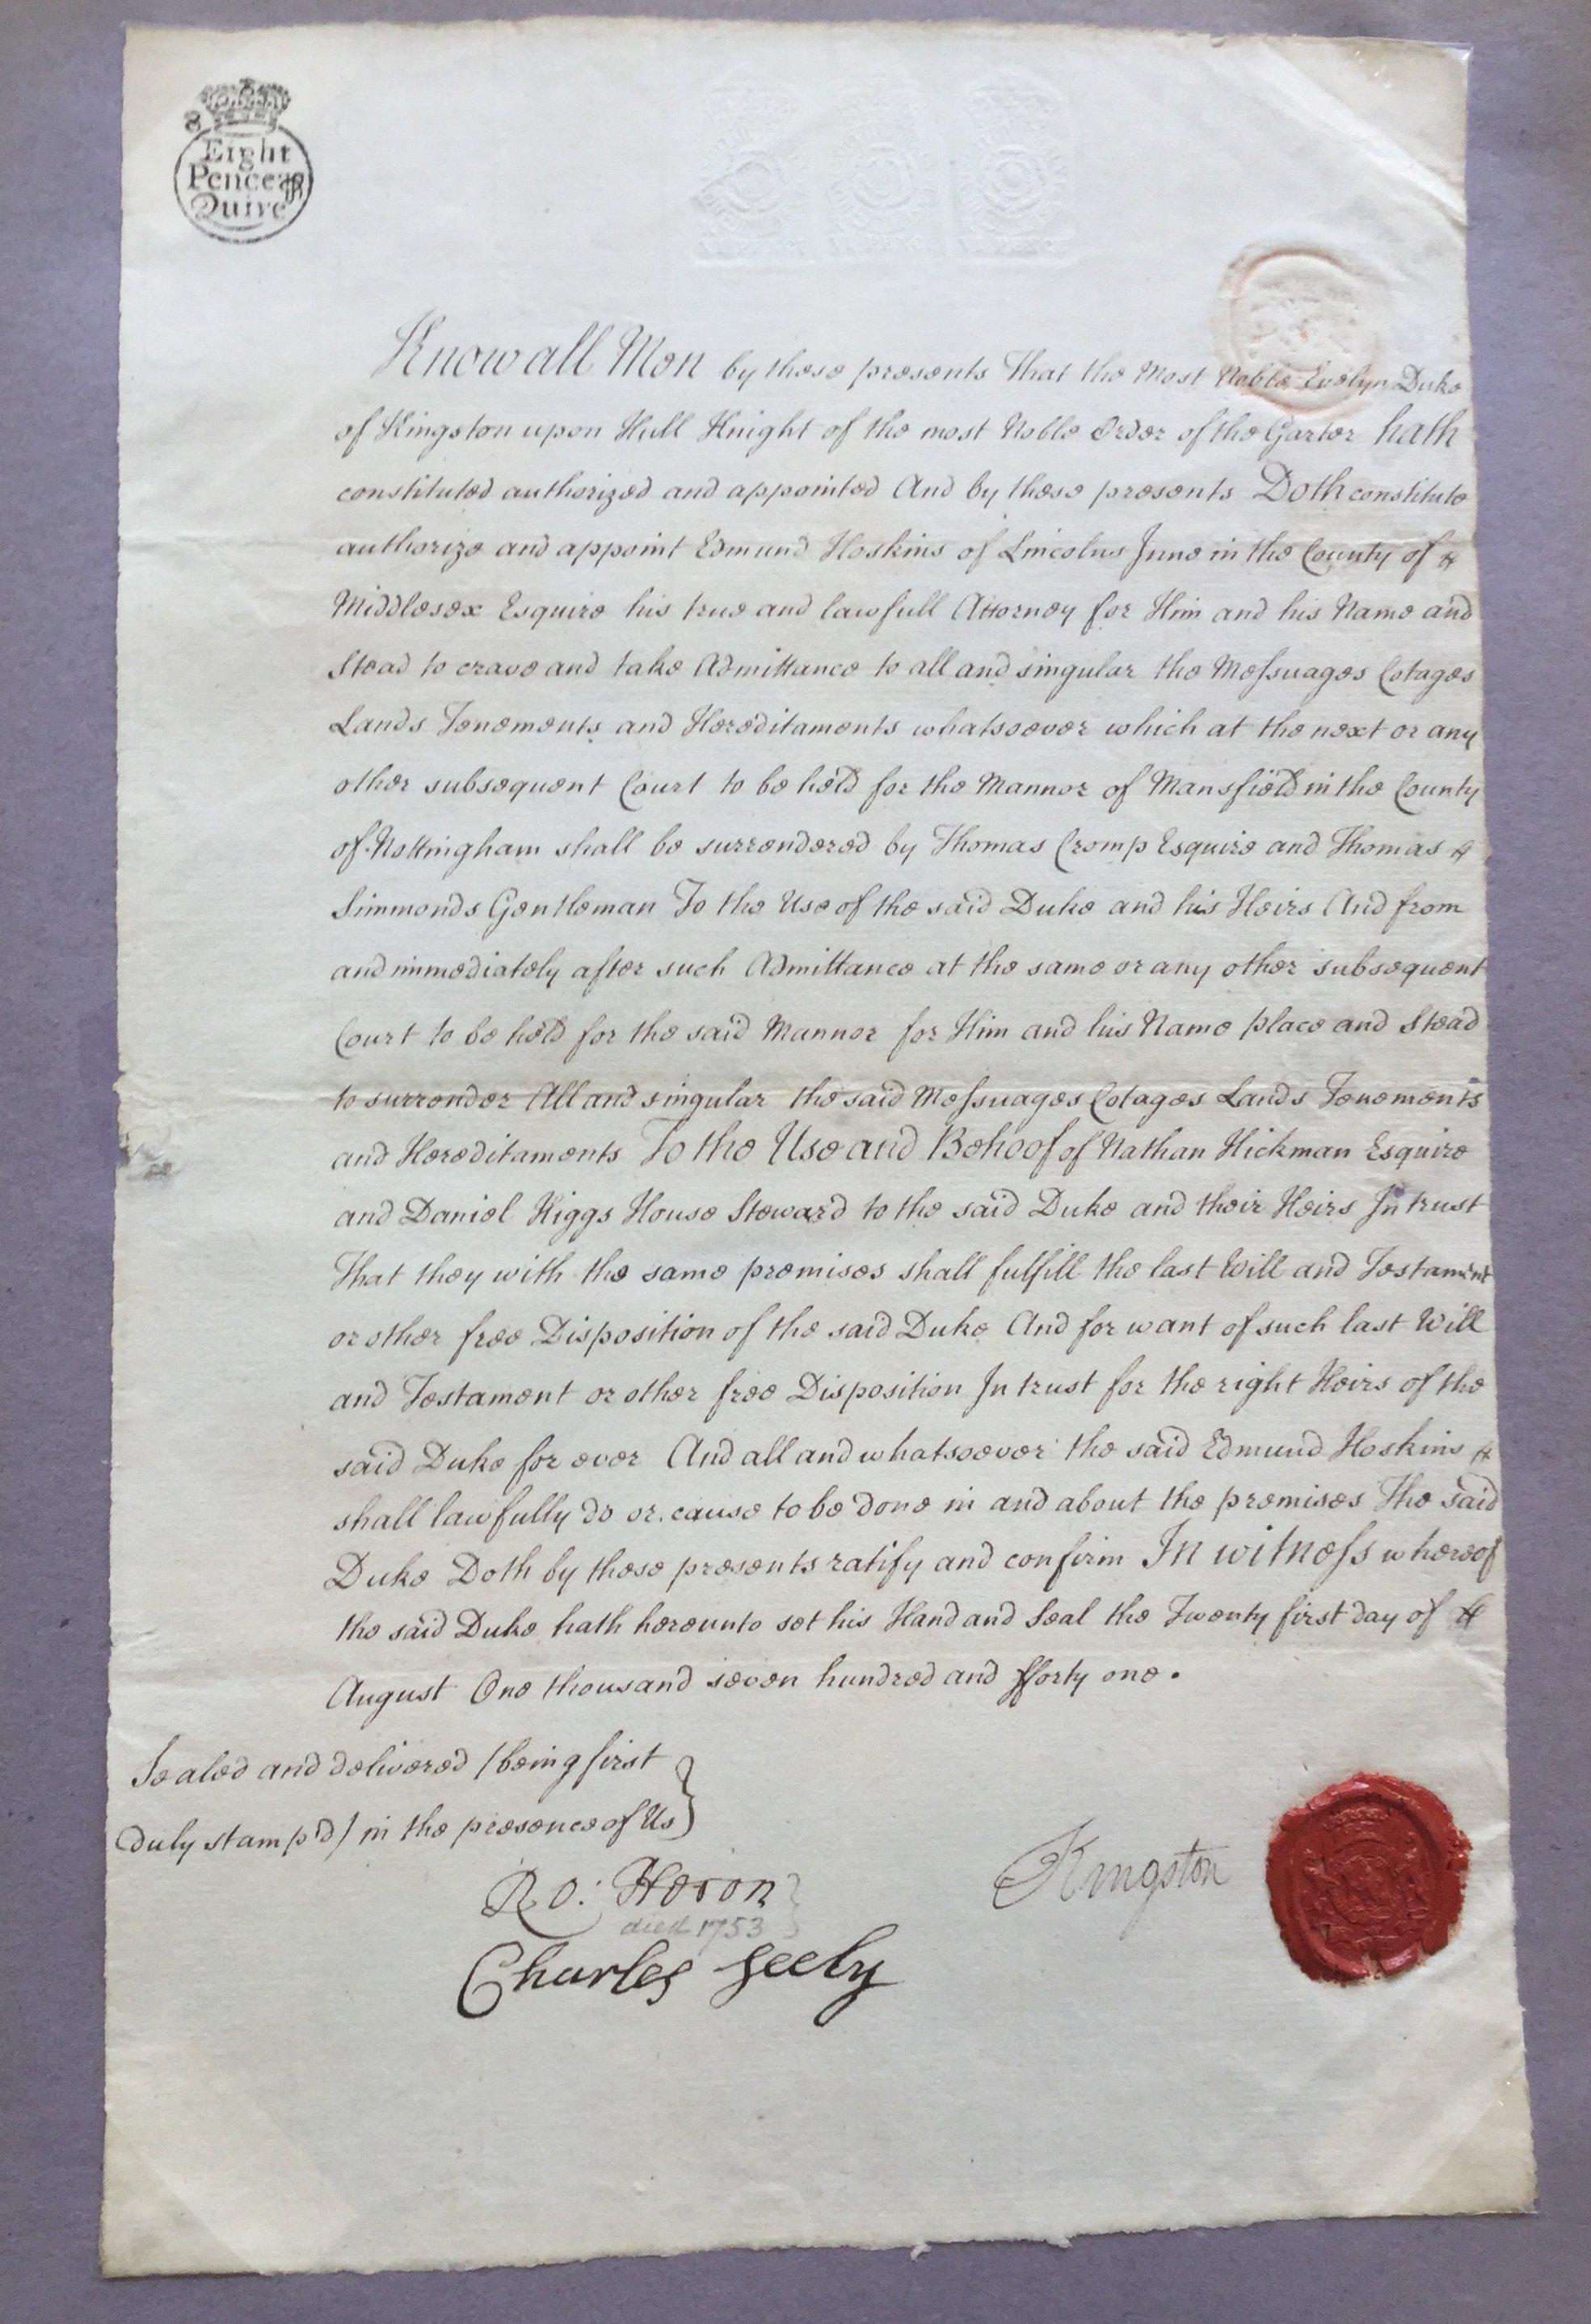 8
Eight
Pence p
Quire
Know all Men by these presents That the Most Noble Evelyn Duke
of Kingston upon Hull Knight of the most Noble Order of the Garter hath
constituted authorized and appointed And by these presents Doth constitute
authorize and appoint Edmund Hoskins of Lincolns Inne in the County of
Middlesex Esquire his true and lawfull Attorney for Him and his Name and
Stead to crave and take Admittance to all and singular the Meſsuages Cotages
Lands Tenements and Hereditaments whatsoever which at the next or any
other subsequent Court to be held for the Mannor of Mansfield in the County
of Nottingham shall be surrendered by Thomas Cromp Esquire and Thomas
Simmonds Gentleman To the Use of the said Duke and his Heirs And from
and immediately after such Admittance at the same or any other subsequent
Court to be held for the said Mannor for Him and his Name place and Stead
to surrender All and singular the said Meſsuages Cotages Lands Tenements
and Hereditaments To the Use and Behoof of Nathan Hickman Esquire
and Daniel Higgs House Steward to the said Duke and their Heirs In trust
That they with the same premises shall fulfill the last Will and Testament
or other free Disposition of the said Duke And for want of such last Will
and Testament or other free Disposition In trust for the right Heirs of the
said Duke for ever And all and whatsoever the said Edmund Hoskins
shall lawfully do or cause to be done in and about the premises The said
Duke Doth by these presents ratify and confirm In witneſs whereof
the said Duke hath hereunto set his Hand and Seal the Twenty first day of
August One thousand seven hundred and fforty one.
Sealed and delivered / being first
duly stamp'd / in the presence of Us
Ro: Heron
died 1753
Charles Seely
Kingston